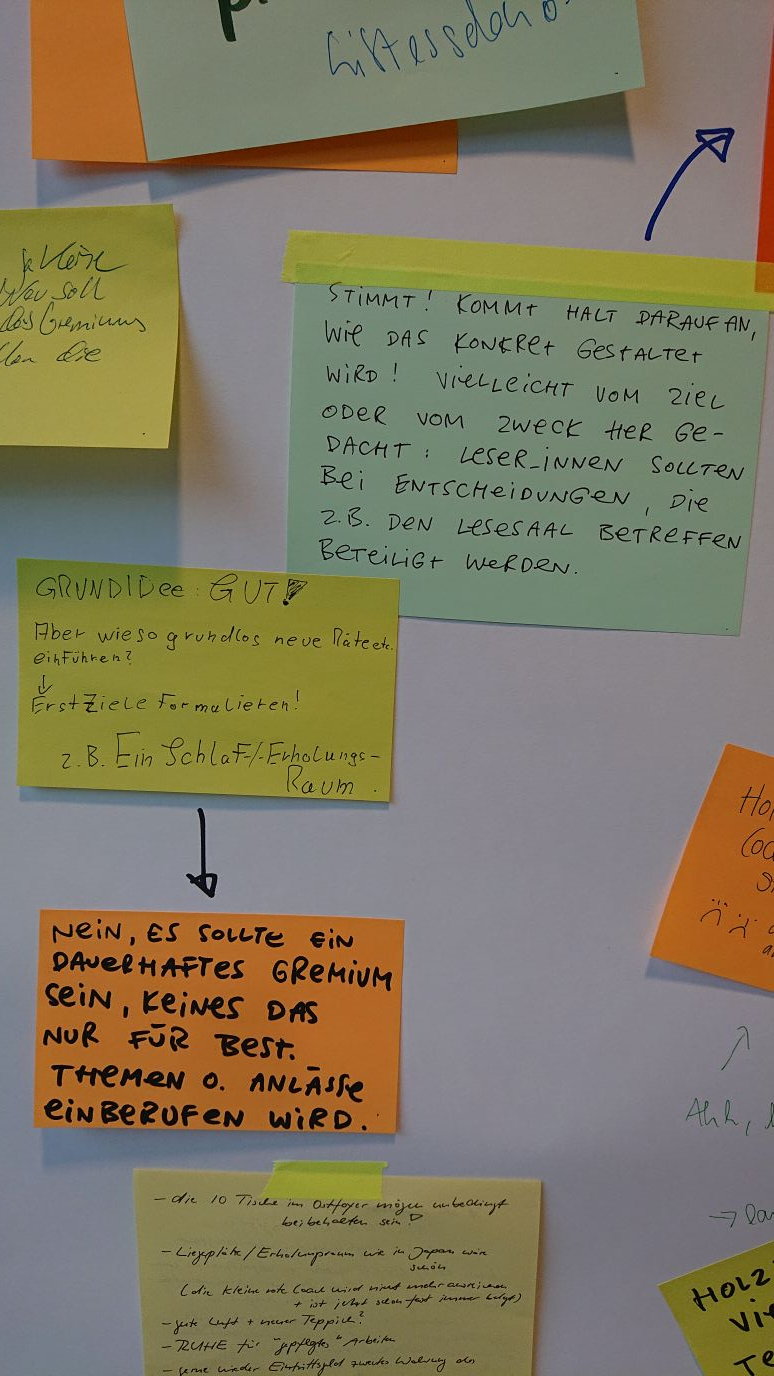 soll
des Gremiums
die
STIMMT! KOMMT HALT DARAUF AN,
WIE DAS KONKRET GESTALTET
WIRD! VIELLEICHT VOM ZIEL
ODER VOM ZWECK HER GE-
DACHT: LESER_INNEN SOLLTEN
BEI ENTSCHEIDUNGEN, DIE
Z.B. DEN LESESAAL BETREFFEN
BETEILIGT WERDEN.
GRUNDIDee: GUT!
Aber wieso grundlos neue Räte etc.
einführen?
↓
Erst Ziele Formulieren!
z.B. Ein Schlaf-/Erholungs-
Raum.
NEIN, ES SOLLTE EIN
DAUERHAFTES GREMIUM
SEIN, KEINES DAS
NUR FÜR BEST.
THEMEN O. ANLÄSSE
EINBERUFEN WIRD.
- die 10 Tische im Ostfoyer mögen unbedingt
beibehalten sein!
- Liegeplätze/Erholungsraum wie in Japan wäre
schön
(die kleine rote Couch wird nicht mehr ausreichen
+ ist jetzt schon fast immer belegt)
- gute Luft + neuer Teppich?
- RUHE für "gepflegtes" Arbeiten
- gerne wieder Eintrittsgeld zwecks Wahrung des
Ahh,
HOLZ